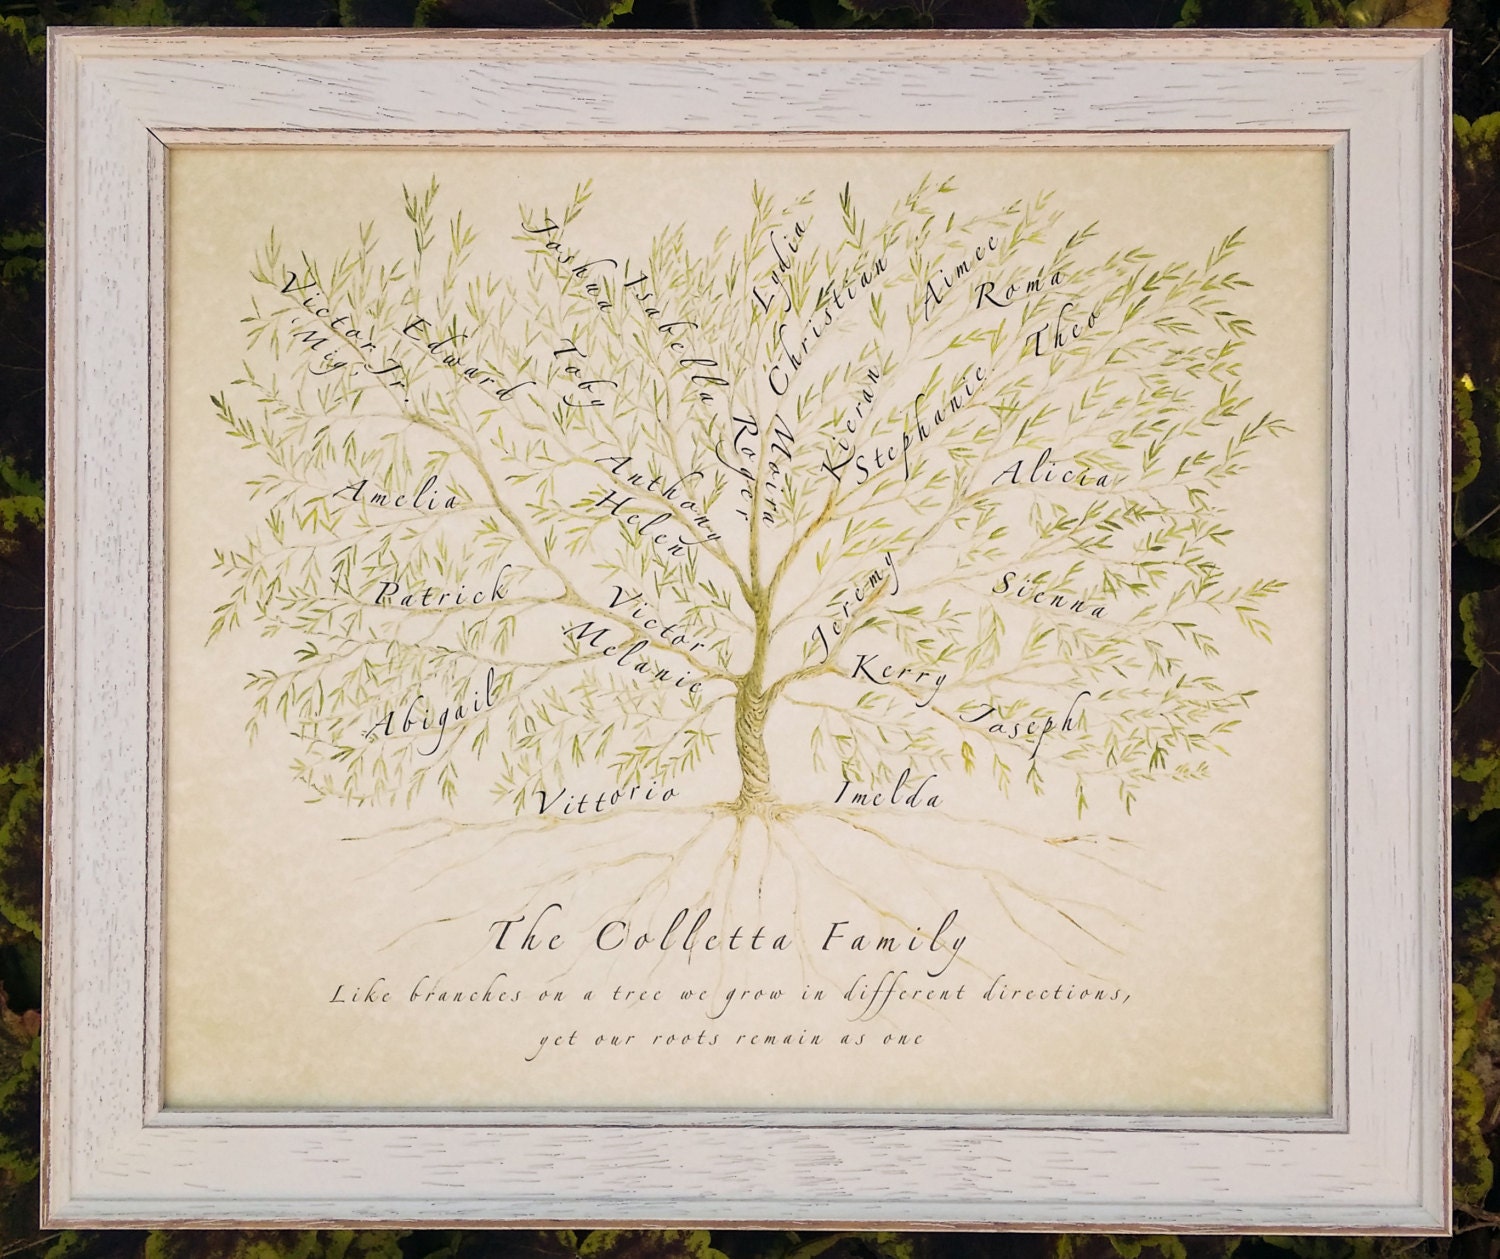 Lydia
Joshua
Aimee
Christian
Isabella
Roma
Victor Jr.
'Mig'
Edward
Theo
Toby
Kieran
Stephanie
Roger
Moira
Anthony
Helen
Alicia
Amelia
Jeremy
Patrick
Sienna
Victor
Melanie
Kerry
Abigail
Joseph
Vittorio
Imelda
The Colletta Family
Like branches on a tree we grow in different directions,
yet our roots remain as one